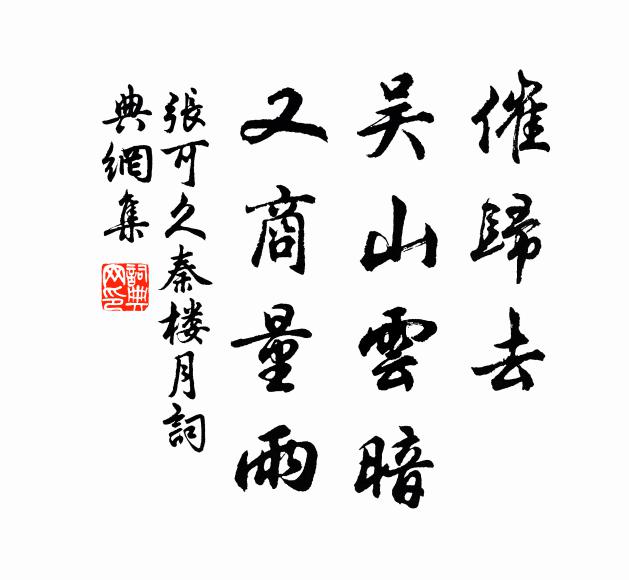 催歸去
吴山雲暗
又商量雨
張可久秦楼月詞
典網集
詞典网印